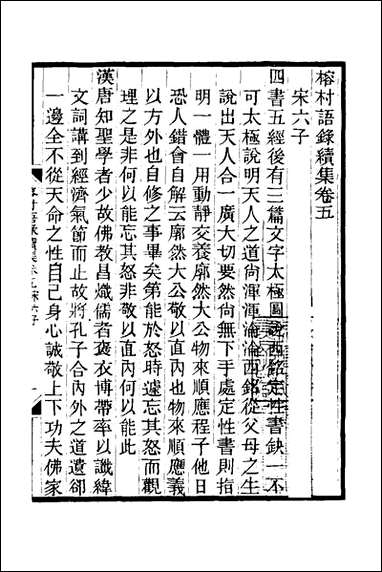 榕村語錄續集卷五
宋六子
四書五經後有三篇文字太極圖說西銘定性書缺一不
可太極說明天人之道尚渾渾淪淪西銘從父母之生
說出天人合一廣大切要然尚無下手處定性書則指
明一體一用動靜交養廓然大公物來順應程子他日
恐人錯會自解云廓然大公敬以直內也物來順應義
以方外也自修之事畢矣第能於怒時遽忘其怒而觀
理之是非何以能忘其怒非敬以直內何以能此
漢唐知聖學者少故佛教昌熾儒者褒衣博帶率以讖緯
文詞講到經濟氣節而止故將孔子合內外之道遺卻
一邊全不從天命之性自己身心誠敬上下功夫佛家